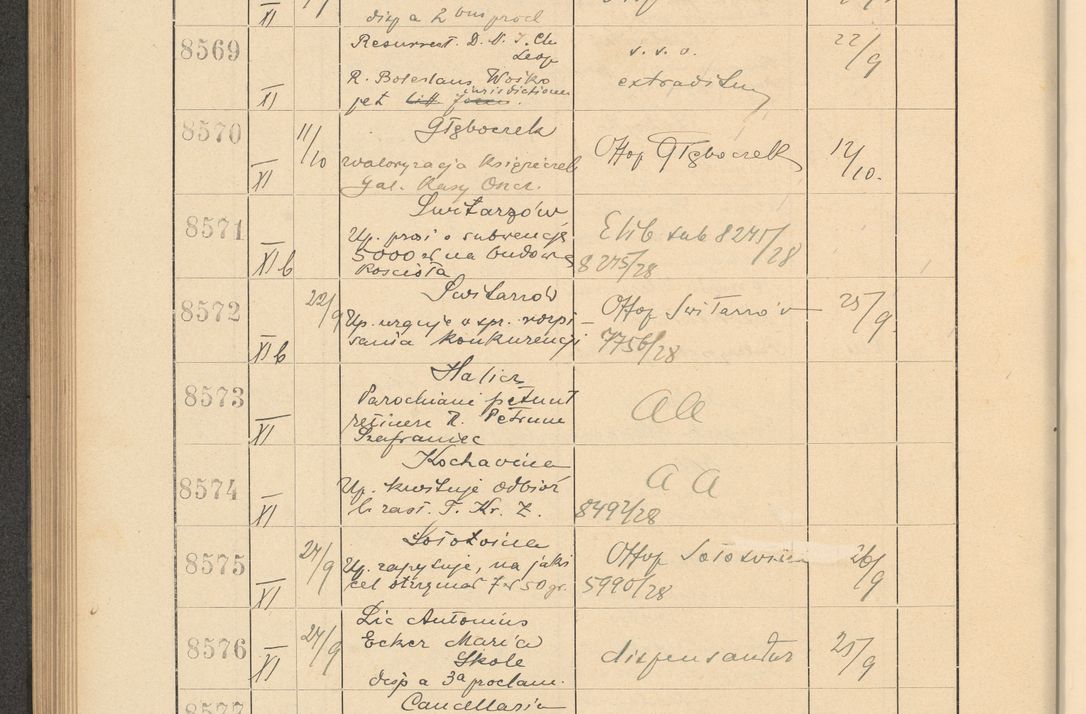 XI
disp a 2 bus procl
8569
XI
Resurrect. D. N. J. Ch
Leop
R. Boleslaus Wojko
pet litt jurisdictionem
v. s. o.
extraditum
22/9
8570
XI
11/10
Głęboczek
waloryzacja książeczek
Gal. Kasy Oszcz.
Offop Głęboczek
12/10.
8571
XI b
Switarzów
Up. prosi o subwencję
5000 zł na budowę
kościoła
Elib sub 8275/28
8275/28
8572
XI b
22/9
Switarzów
Up. urguje o spr. rozpi
sania konkurencji
Offop Switarzów
7756/28
25/9
8573
XI
Halicz
Parochiani petunt
retinere R. Petrum
Szafraniec
aa
8574
XI
Kochavina
Up. kwituje odbiór
T. Kr. Z.
a a
8492/28
8575
XI
24/9
Sołotwina
Up. zapytuje, na jaki
cel otrzymał 7 zł 50 gr.
Offop Sołotwina
5990/28
26/9
8576
XI
24/9
Lic Antonius
Ecker Maria
Skole
disp a 3a proclam.
dispensantur
25/9
8577
Cancellaria